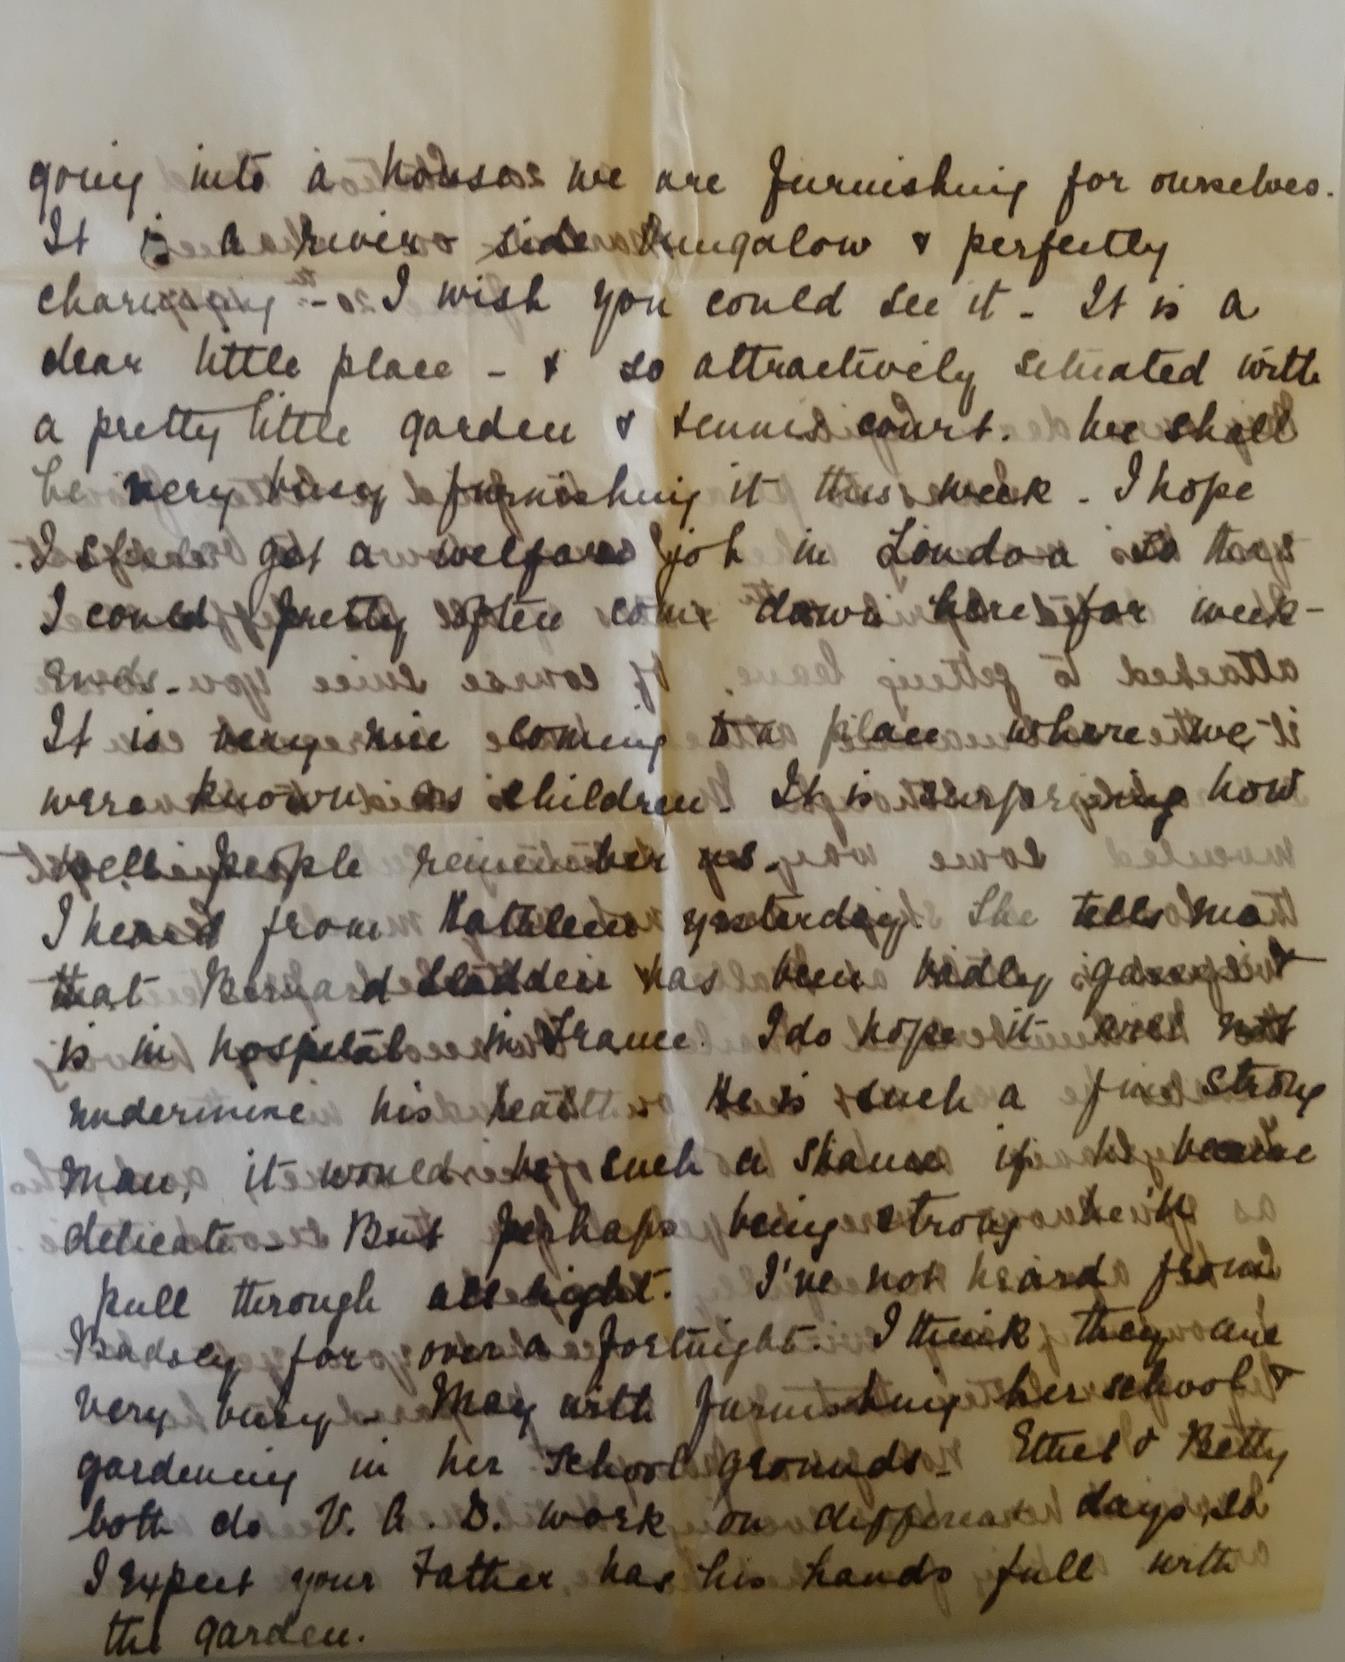 going into a house we are furnishing for ourselves.
It is a river side bungalow & perfectly
charming - I wish you could see it - It is a
dear little place - & so attractively situated with
a pretty little garden & tennis court. We shall
be very busy furnishing it this week - I hope
I shall get a welfare job in London so that
I could pretty often come down here for week-
ends -
It is very nice coming to a place where we
were known as children - It is surprising how
well people remember us -
I heard from Kathleen yesterday. She tells me
that Bernard Sladden has been badly gassed &
is in hospital in France. I do hope it will not
undermine his health - He is such a fine strong
man, it would be such a shame if he became
delicate - But perhaps being strong he'll
pull through all right. I've not heard from
Badsey for over a fortnight. I think they are
very busy - May with furnishing her school &
gardening in her school grounds - Ethel & Betty
both do V.A.D. work on different days, so
I expect your Father has his hands full with
the garden.